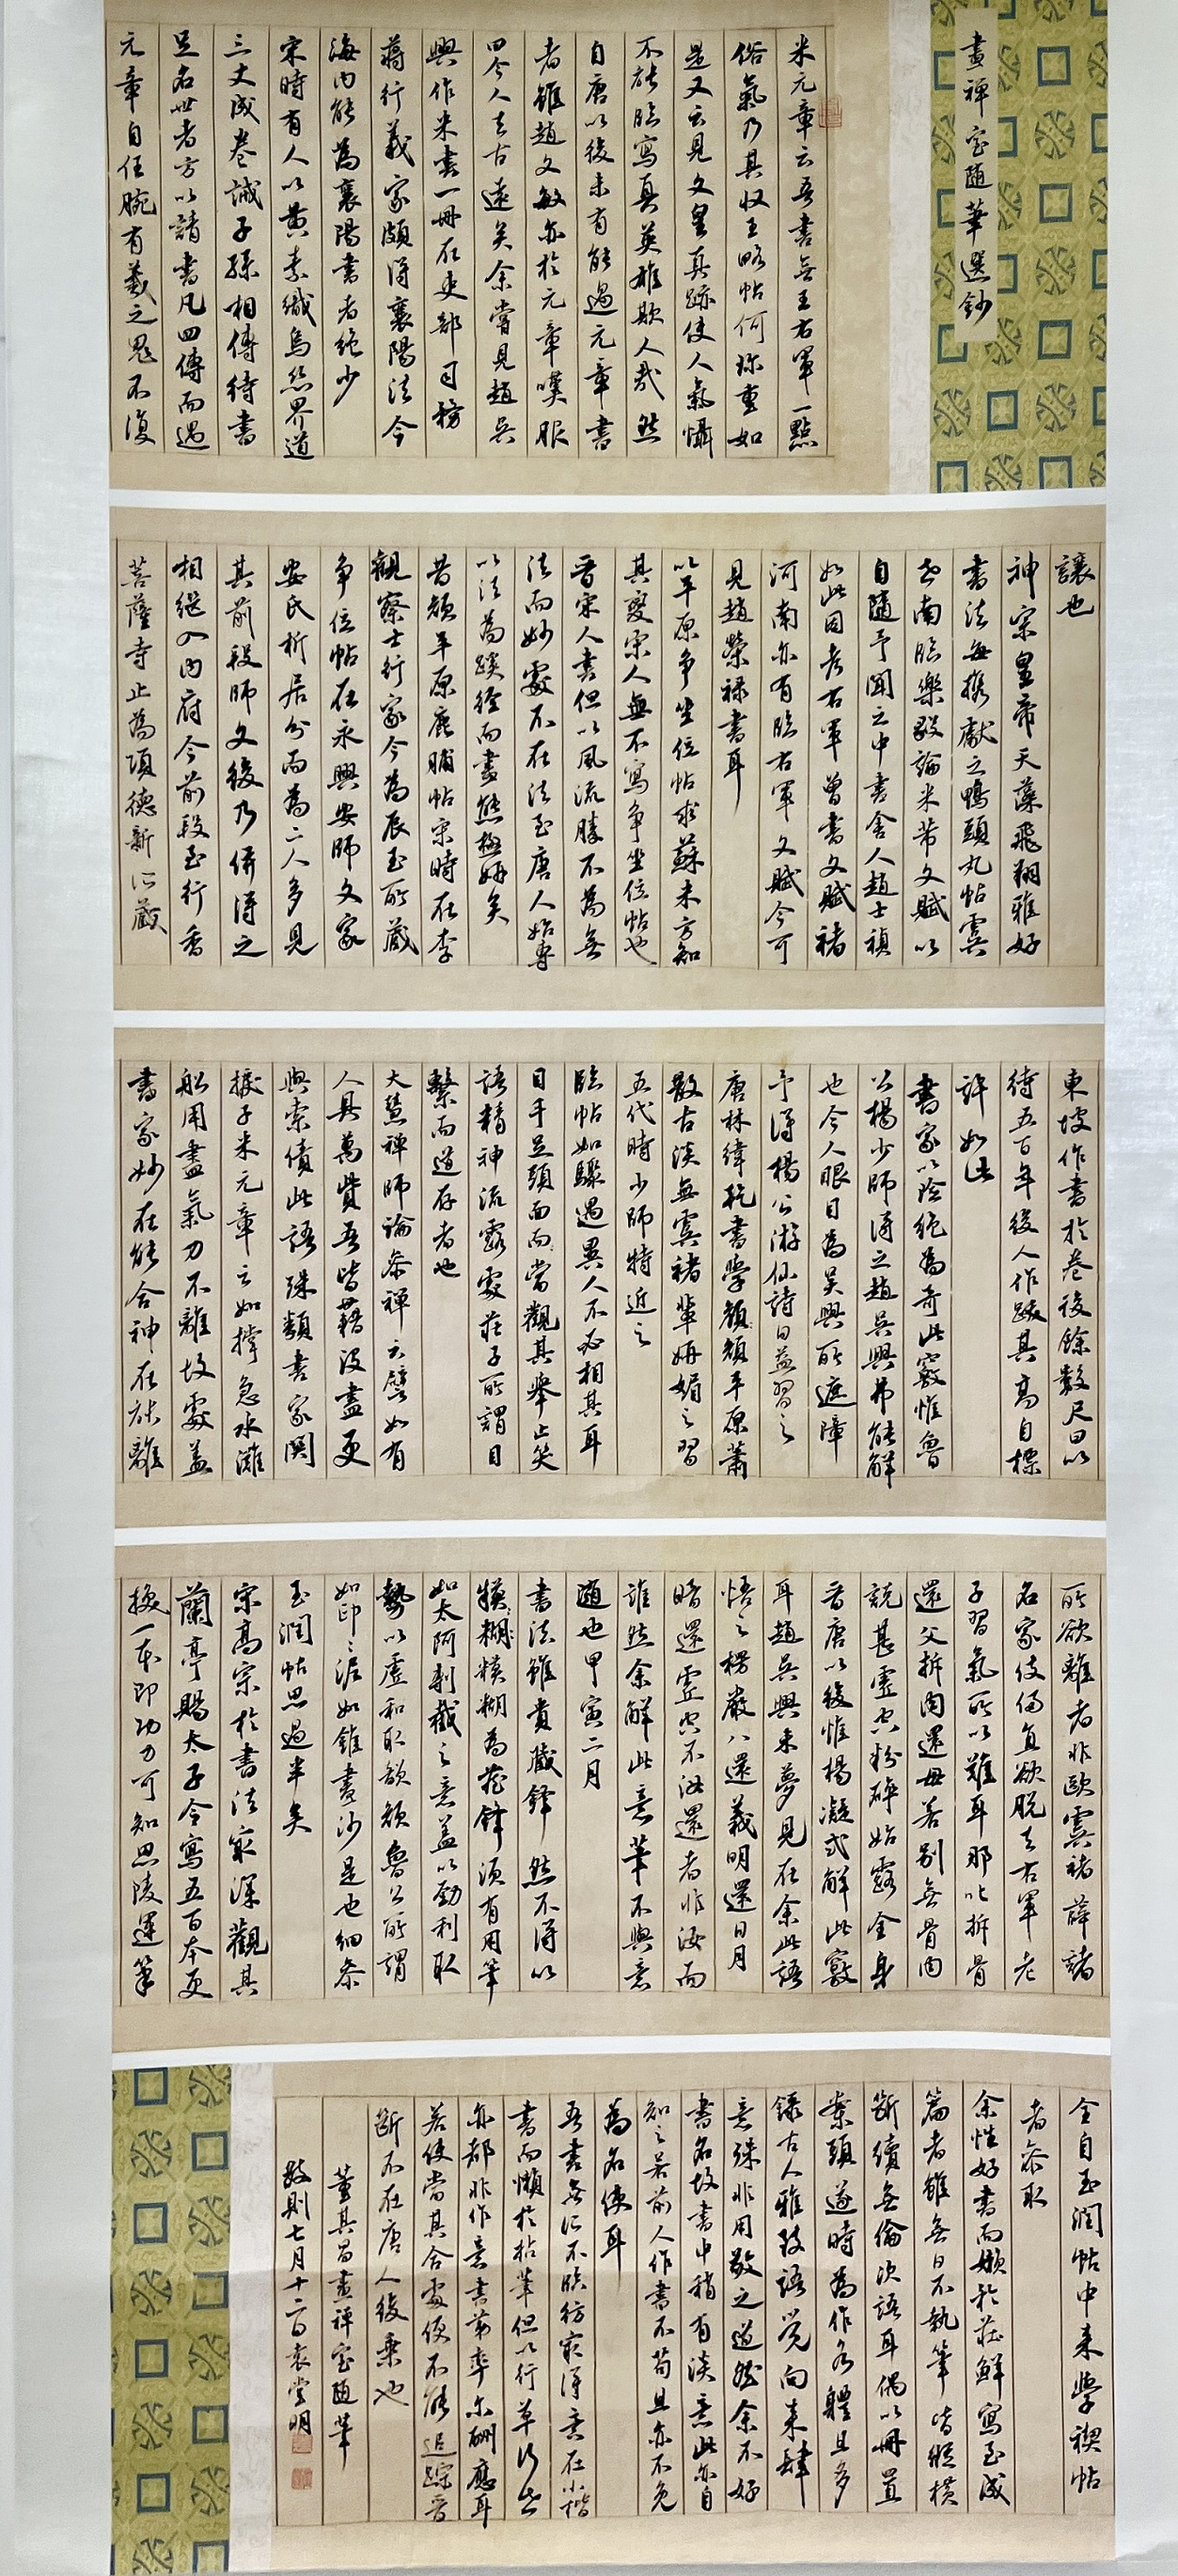 畫禪室隨筆選鈔
米元章云吾書無王右軍一點
俗氣乃其收王略帖何珍重如
是又云見文皇真跡使人氣懾
不能臨寫真英雄欺人哉然
自唐以後未有能過元章書
者雖趙文敏亦於元章嘆服
曰今人去古遠矣余嘗見趙吳
興作米書一冊在吏部司務
蔣行義家頗得襄陽法今
海內能為襄陽書者絕少
宋時有人以黃素織烏絲界道
三丈成卷誡子孫相傳待書
足名世者方以請書凡四傳而遇
元章自任腕有羲之鬼不復
讓也
神宗皇帝天藻飛翔雅好
書法每攜獻之鴨頭丸帖虞
世南臨樂毅論米芾文賦以
自隨予聞之中書舍人趙士禎
如此因考右軍曾書文賦褚
河南亦有臨右軍文賦今可
見趙榮祿書耳
以平原爭坐位帖求蘇米方知
其變宋人無不寫爭坐位帖也
晉宋人書但以風流勝不為無
法而妙處不在法至唐人始專
以法為蹊徑而盡態極妍矣
昔顏平原鹿脯帖宋時在李
觀察士行家今為辰玉所藏
爭位帖在永興安師文家
安氏析居分而為二人多見
其前段師文後乃併得之
相繼入內府今前段至行香
菩薩寺止為項德新所藏
東坡作書於卷後餘數尺曰以
待五百年後人作跋其高自標
許如此
書家以險絕為奇此竅惟魯
公楊少師得之趙吳興弗能解
也今人眼目為吳興所遮障
予得楊公游仙詩日益習之
唐林緯乾書學顏平原蕭
散古淡無虞褚輩妍媚之習
五代時少師特近之
臨帖如驟遇異人不必相其耳
目手足頭面而當觀其舉止笑
語精神流露處莊子所謂目
擊而道存者也
大慧禪師論參禪云譬如有
人具萬貲吾皆藉沒盡更
與索債此語殊類書家關
捩子米元章云如撐急水灘
船用盡氣力不離故處蓋
書家妙在能合神在能離
所欲離者非歐虞褚薛諸
名家伎倆直欲脫去右軍老
子習氣所以難耳那叱拆骨
還父拆肉還母若別無骨肉
說甚虛空粉碎始露全身
晉唐以後惟楊凝式解此竅
耳趙吳興未夢見在余此語
悟之楞嚴八還義明還日月
暗還虛空不汝還者非汝而
誰然余解此意筆不與意
隨也甲寅二月
書法雖貴藏鋒然不得以
模糊為藏鋒須有用筆
如太阿剸截之意蓋以勁利取
勢以虛和取韻顏魯公所謂
如印印泥如錐畫沙是也細參
玉潤帖思過半矣
宋高宗於書法最深觀其
蘭亭賜太子令寫五百本更
換一本即功力可知思陵運筆
全自玉潤帖中來學禊帖
者參取
余性好書而懶矜莊鮮寫至成
篇者雖無日不執筆皆縱橫
斷續無倫次語耳偶以冊置
案頭遂時為作各體且多
錄古人雅致語覺向來肆
意殊非用敬之道然余不好
書名故書中稍有淡意此亦自
知之若前人作書不苟且亦不免
為名使耳
吾書無所不臨仿最得意在小楷
書而懶於拈筆但以行草行世
亦都非作意書第率爾酬應耳
若使當其合處便不能追蹤晉
斷不在唐人後乘也
董其昌畫禪室隨筆